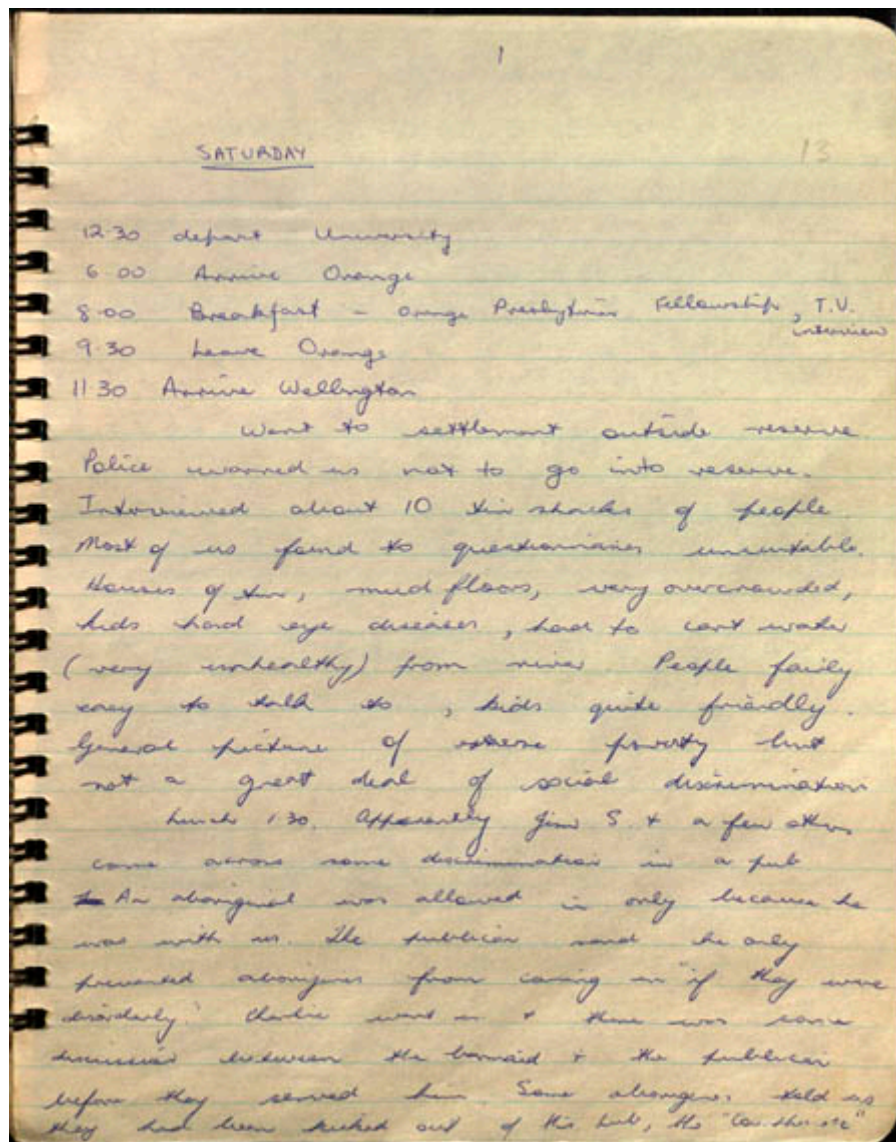 1
SATURDAY
13
12.30 depart University
6.00 Arrive Orange
8.00 Breakfast - Orange Presbyterian Fellowship, T.V.
interview
9.30 Leave Orange
11 30 Arrive Wellington
Went to settlement outside reserve.
Police warned us not to go into reserve.
Interviewed about 10 tin shacks of people.
Most of us found to questionnaires unsuitable.
Houses of tin, mud floors, very overcrowded,
kids had eye diseases, had to cart water
(very unhealthy) from river. People fairly
easy to talk to, kids quite friendly.
General picture of extreme poverty but
not a great deal of social discrimination
Lunch 1.30. Apparently Jim S. + a few others
came across some discrimination in a pub
An aboriginal was allowed in only because he
was with us. The publican said he only
prevented aborigines from coming in "if they were
disorderly." Charlie went in + there was some
discussion between the barmaid + the publican
before they served him. Some aborigines told us
they had been kicked out of this pub, the